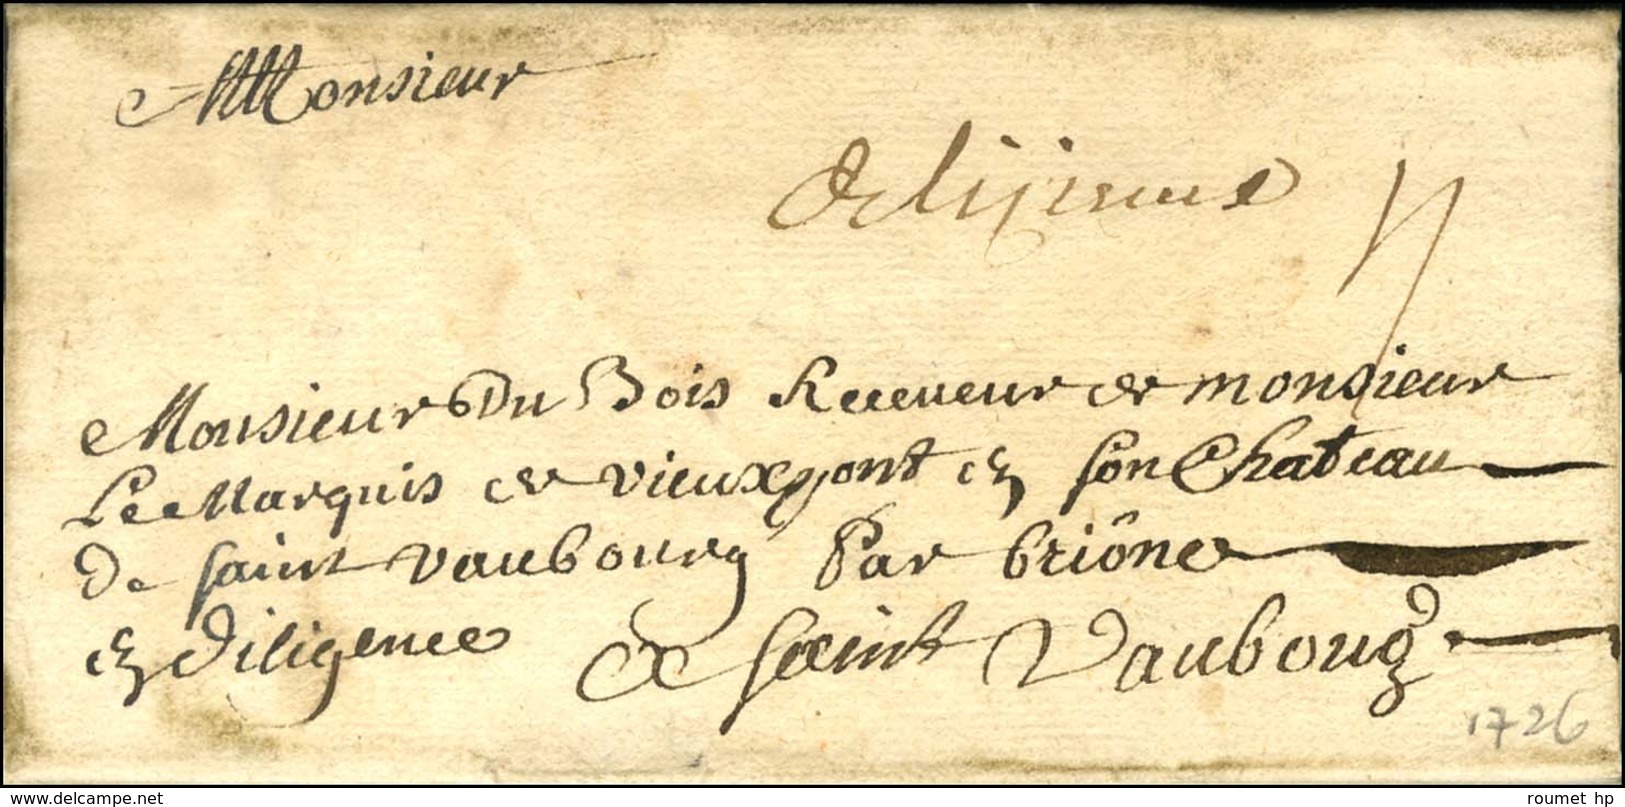 Monsieur
de lijieux
4
Monsieur Du Bois Receveur de monsieur
Le Marquis de vieuxpont en son Chateau
de saint vaubourg Par briône
en diligence A saint Vaubourg
1726
www.delcampe.net
roumet hp